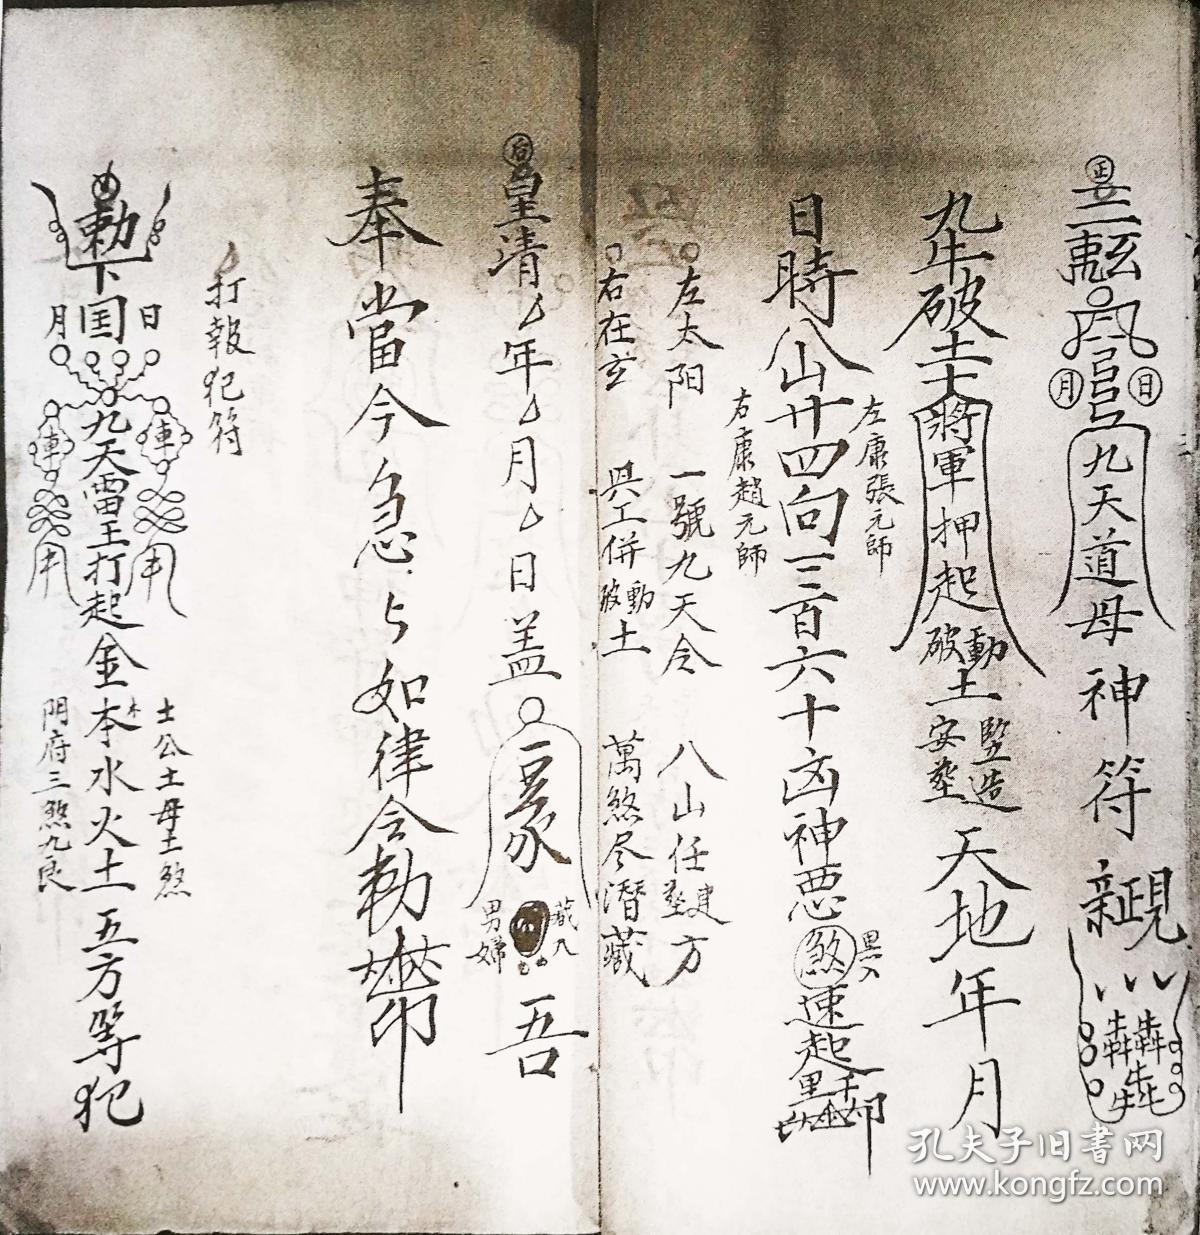 正
日
月
九天道母神符
九牛破土士將軍押起
破動土
豎造
安葬
天地年月
左康張元師
日時八山廿四向三百六十凶神惡煞速起
右康趙元師
左太阳 一號九天令 八山任建葬方
右在玄 具工併動破土 萬煞尽潛藏
皇清 年 月 日盖
男婦
吾
奉當今急 如律令勅
打報犯符
勅下
日
月
土公土母土煞
九天雷王打起金木水火土五方等犯
門府三煞九良
孔夫子旧书网
www.kongfz.com